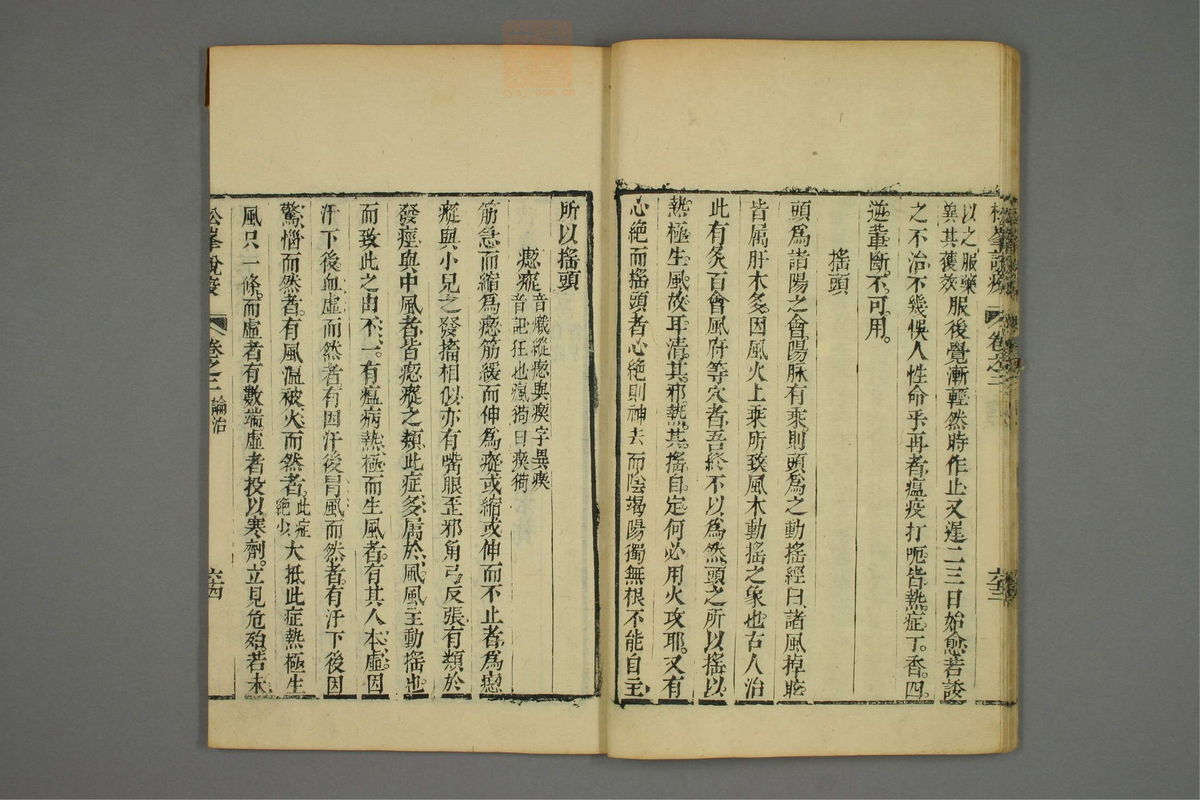 松峯說疫 卷之二 六十三
以之服藥冀其獲效服後覺漸輕然時作止又遲二三日始愈若諉
之不治不幾悞人性命乎再者瘟疫打呃皆熱症丁香四
逆輩斷不可用
搖頭
頭爲諸陽之會陽脉有乘則頭爲之動搖經曰諸風掉眩
皆属肝木多因風火上乘所致風木動搖之象也古人治
此有灸百會風府等穴者吾終不以爲然頭之所以搖以
熱極生風故耳清其邪熱其搖自定何必用火攻耶又有
心絶而搖頭者心絶則神去而陰竭陽獨無根不能自主
所以搖頭
瘛瘲 音熾縱瘛與瘈字異瘈音記狂也瘋狗曰瘈狗
筋急而縮爲瘛筋緩而伸爲瘲或縮或伸而不止者爲瘛
瘲與小兒之發搐相似亦有嘴眼歪邪角弓反張有類於
發痙與中風者皆瘛瘲之類此症多屬於風風主動搖也
而致此之由不一有瘟病熱極而生風者有其人本虛因
汗下後血虛而然者有因汗後冒風而然者有汗下後因
驚惱而然者有風温被火而然者此症絶少大抵此症熱極生
風只一條而虛者有數端虛者投以寒劑立見危殆若未
松峯說疫 卷之二 論治 六十四